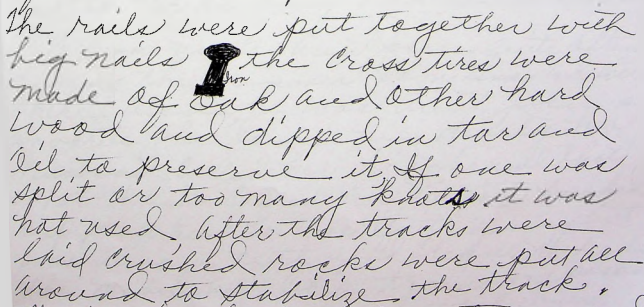 The rails were put together with
big nails the cross tires were
Iron
made of oak and other hard
wood and dipped in tar and
oil to preserve it. If one was
split or too many knots it was
not used. After the tracks were
laid crushed rocks were put all
around to stabilize the track.